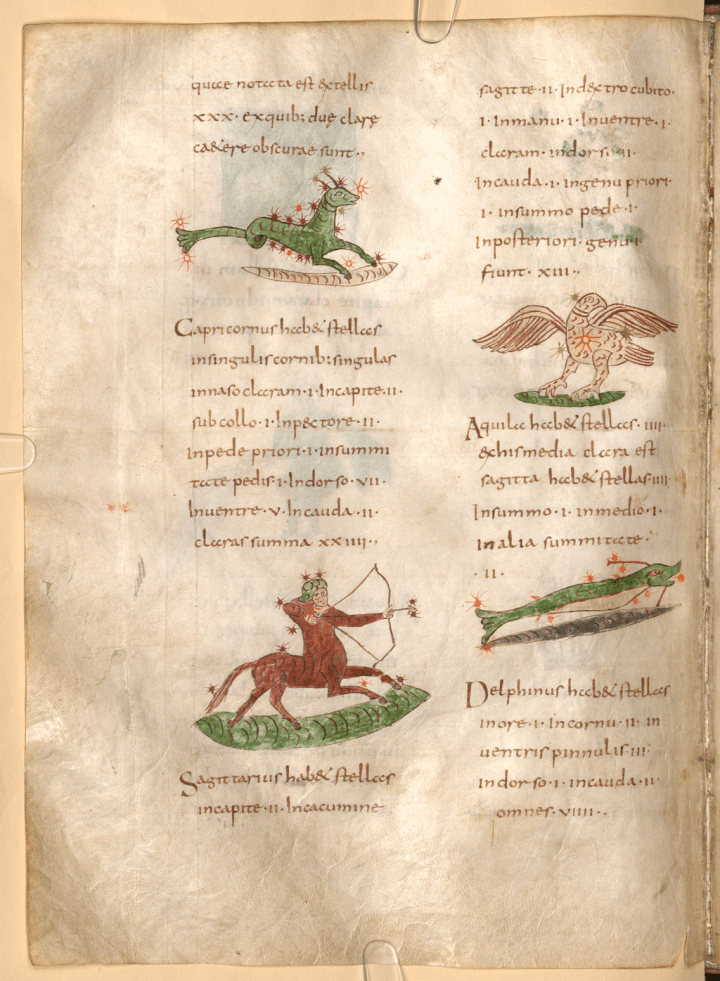 quae notata est & stellis
xxx · exquib; duę clarę
cad&ere obscurae sunt ·,
Capricornus hab& stellas
insingulis cornib; singulas
innaso claram · i · Incapite · ii ·
sub collo · i · Inpectore · ii ·
inpede priori · i · insummi
tate pedis · i · Indorso · vii ·
Inventre · v · Incauda · ii ·
claras summa xxiiii ·,
Sagittarius hab& stellas
incapite · ii · Incacumine
sagitte · ii · Indextro cubito ·
i · Inmanu · i · Inventre · i ·
claram · indorso · ii ·
incauda · i · ingenu priori ·
i · insummo pede · i ·
Inposteriori · genu · i ·
fiunt · xiii ·,
Aquila hab& stellas · iiii ·
&xhis media clara est
sagitta hab& stellas · iiii ·
Insummo · i · inmedio · i ·
inalia summitate ·
· ii ·
Delphinus hab& stellas
inore · i · Incornu · ii · in
ventris pinnulis iii ·
indorso · i · incauda · ii ·
omnes · viiii ·,